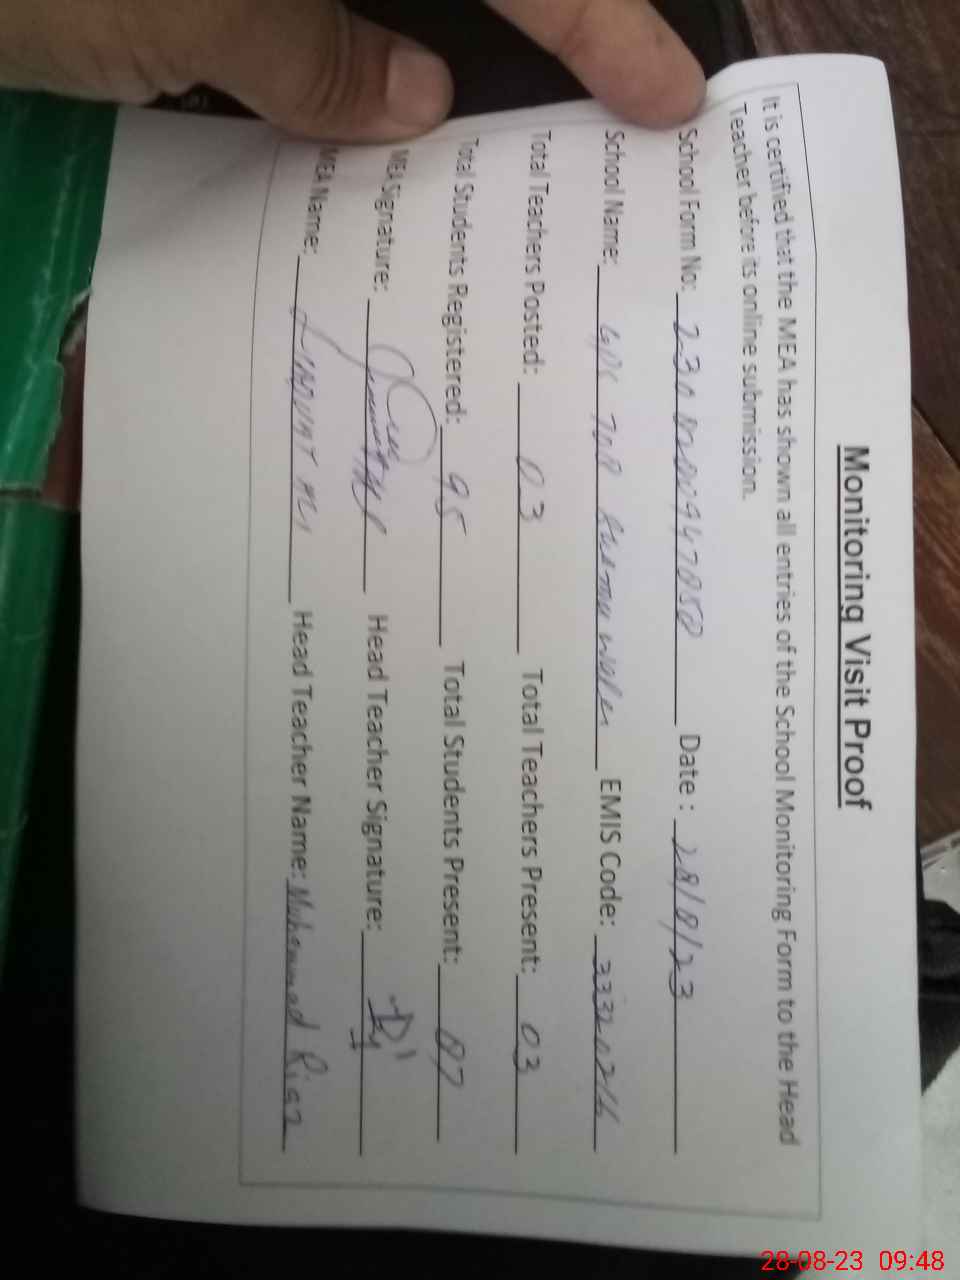 Monitoring Visit Proof
It is certified that the MEA has shown all entries of the School Monitoring Form to the Head
Teacher before its online submission.
School Form No: Date : 28/8/23
School Name: EMIS Code: 33320216
Total Teachers Posted: 03 Total Teachers Present: 03
Total Students Registered: 95 Total Students Present: 87
MEA Signature: Head Teacher Signature:
MEA Name: Head Teacher Name: Muhammad Riaz
28-08-23 09:48